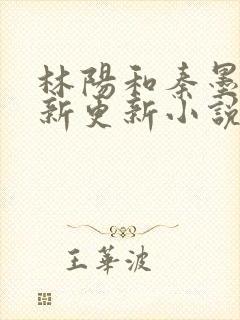 林陽和秦墨
新更新小說
王華波